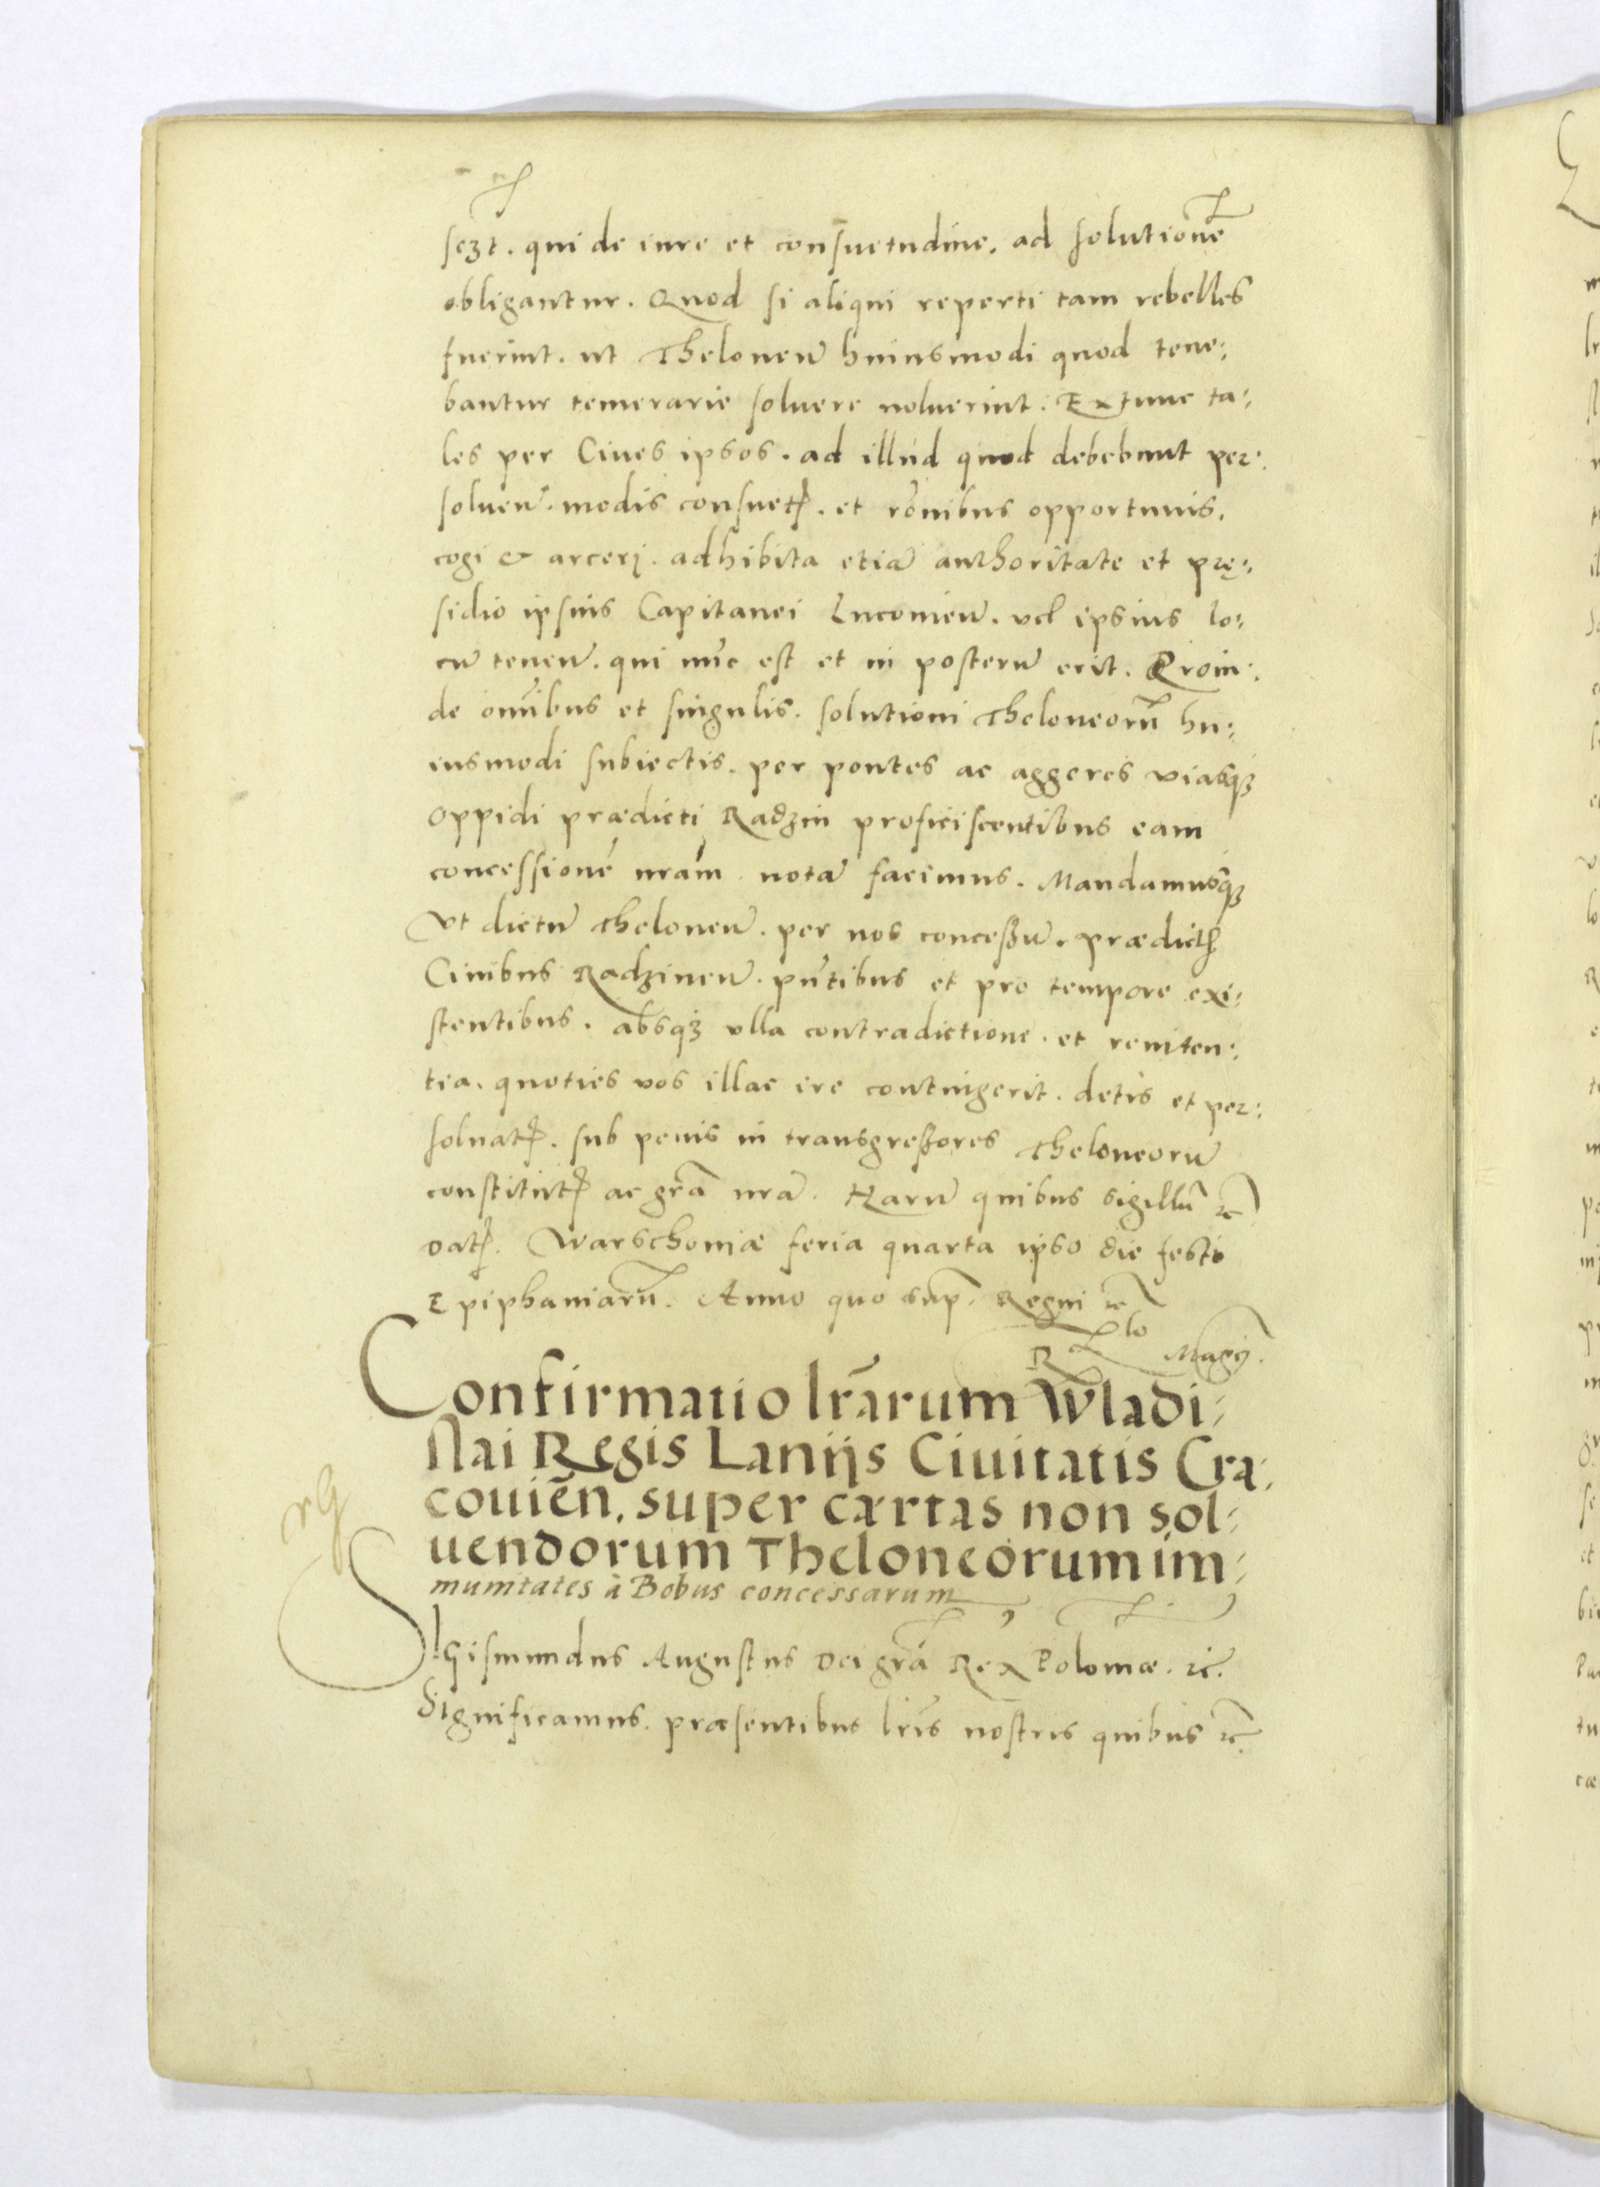 sc3t. qui de iure et consuetudine. ad solutionē
obligantur. Quod si aliqui reperti tam rebelles
fuerint. ut Theloneū huiusmodi quod tene:
bantur temerarie soluere noluerint. Extunc ta:
les per Ciues ipsos. ad illud quod debebunt per:
soluen̄. modis consuetꝭ. et rōnibus opportunis.
cogi & arceri. adhibita etiā authoritate et prę:
sidio ipsius Capitanei Lucouien̄. vel ipsius lo:
cū tenen̄. qui nūc est et in posterū erit. Proin:
de om̄ibus et singulis. solutioni Theloneorū hu:
iusmodi subiectis. per pontes ac aggeres viasqȝ
oppidi prædicti Radzin proficiscentibus eam
concessionē nrām notā facimus. Mandamusqȝ
Vt dictū Theloneū. per nos conceßū. prædictꝭ
Ciuibus Radzinen̄. pn̄tibus et pro tempore exi:
stentibus. absqȝ vlla contradictione. et reniten:
tia. quoties vos illac ire contingerit. detis et per:
soluatꝭ. sub penis in transgreßores Theloneorū
constitutꝭ ac grā nrā. Harū quibus sigillū ꝛc̄
Datꝭ. Warschouiæ feria quarta ipso die festi
Epiphaniarū. Anno quo sup. Regni ꝛc̄
Rlo Magri.
Confirmatio lr̄arum Wladi:
slai Regis Laniis Ciuitatis Cra:
couien̄. super cartas non sol:
uendorum Theloneorum im:
munitates à Bobus concessarum
SIGismundus Augustus Dei grā Rex Poloniæ. ꝛc̄.
Significamus. præsentibus lrīs nostris quibus ꝛc̄.